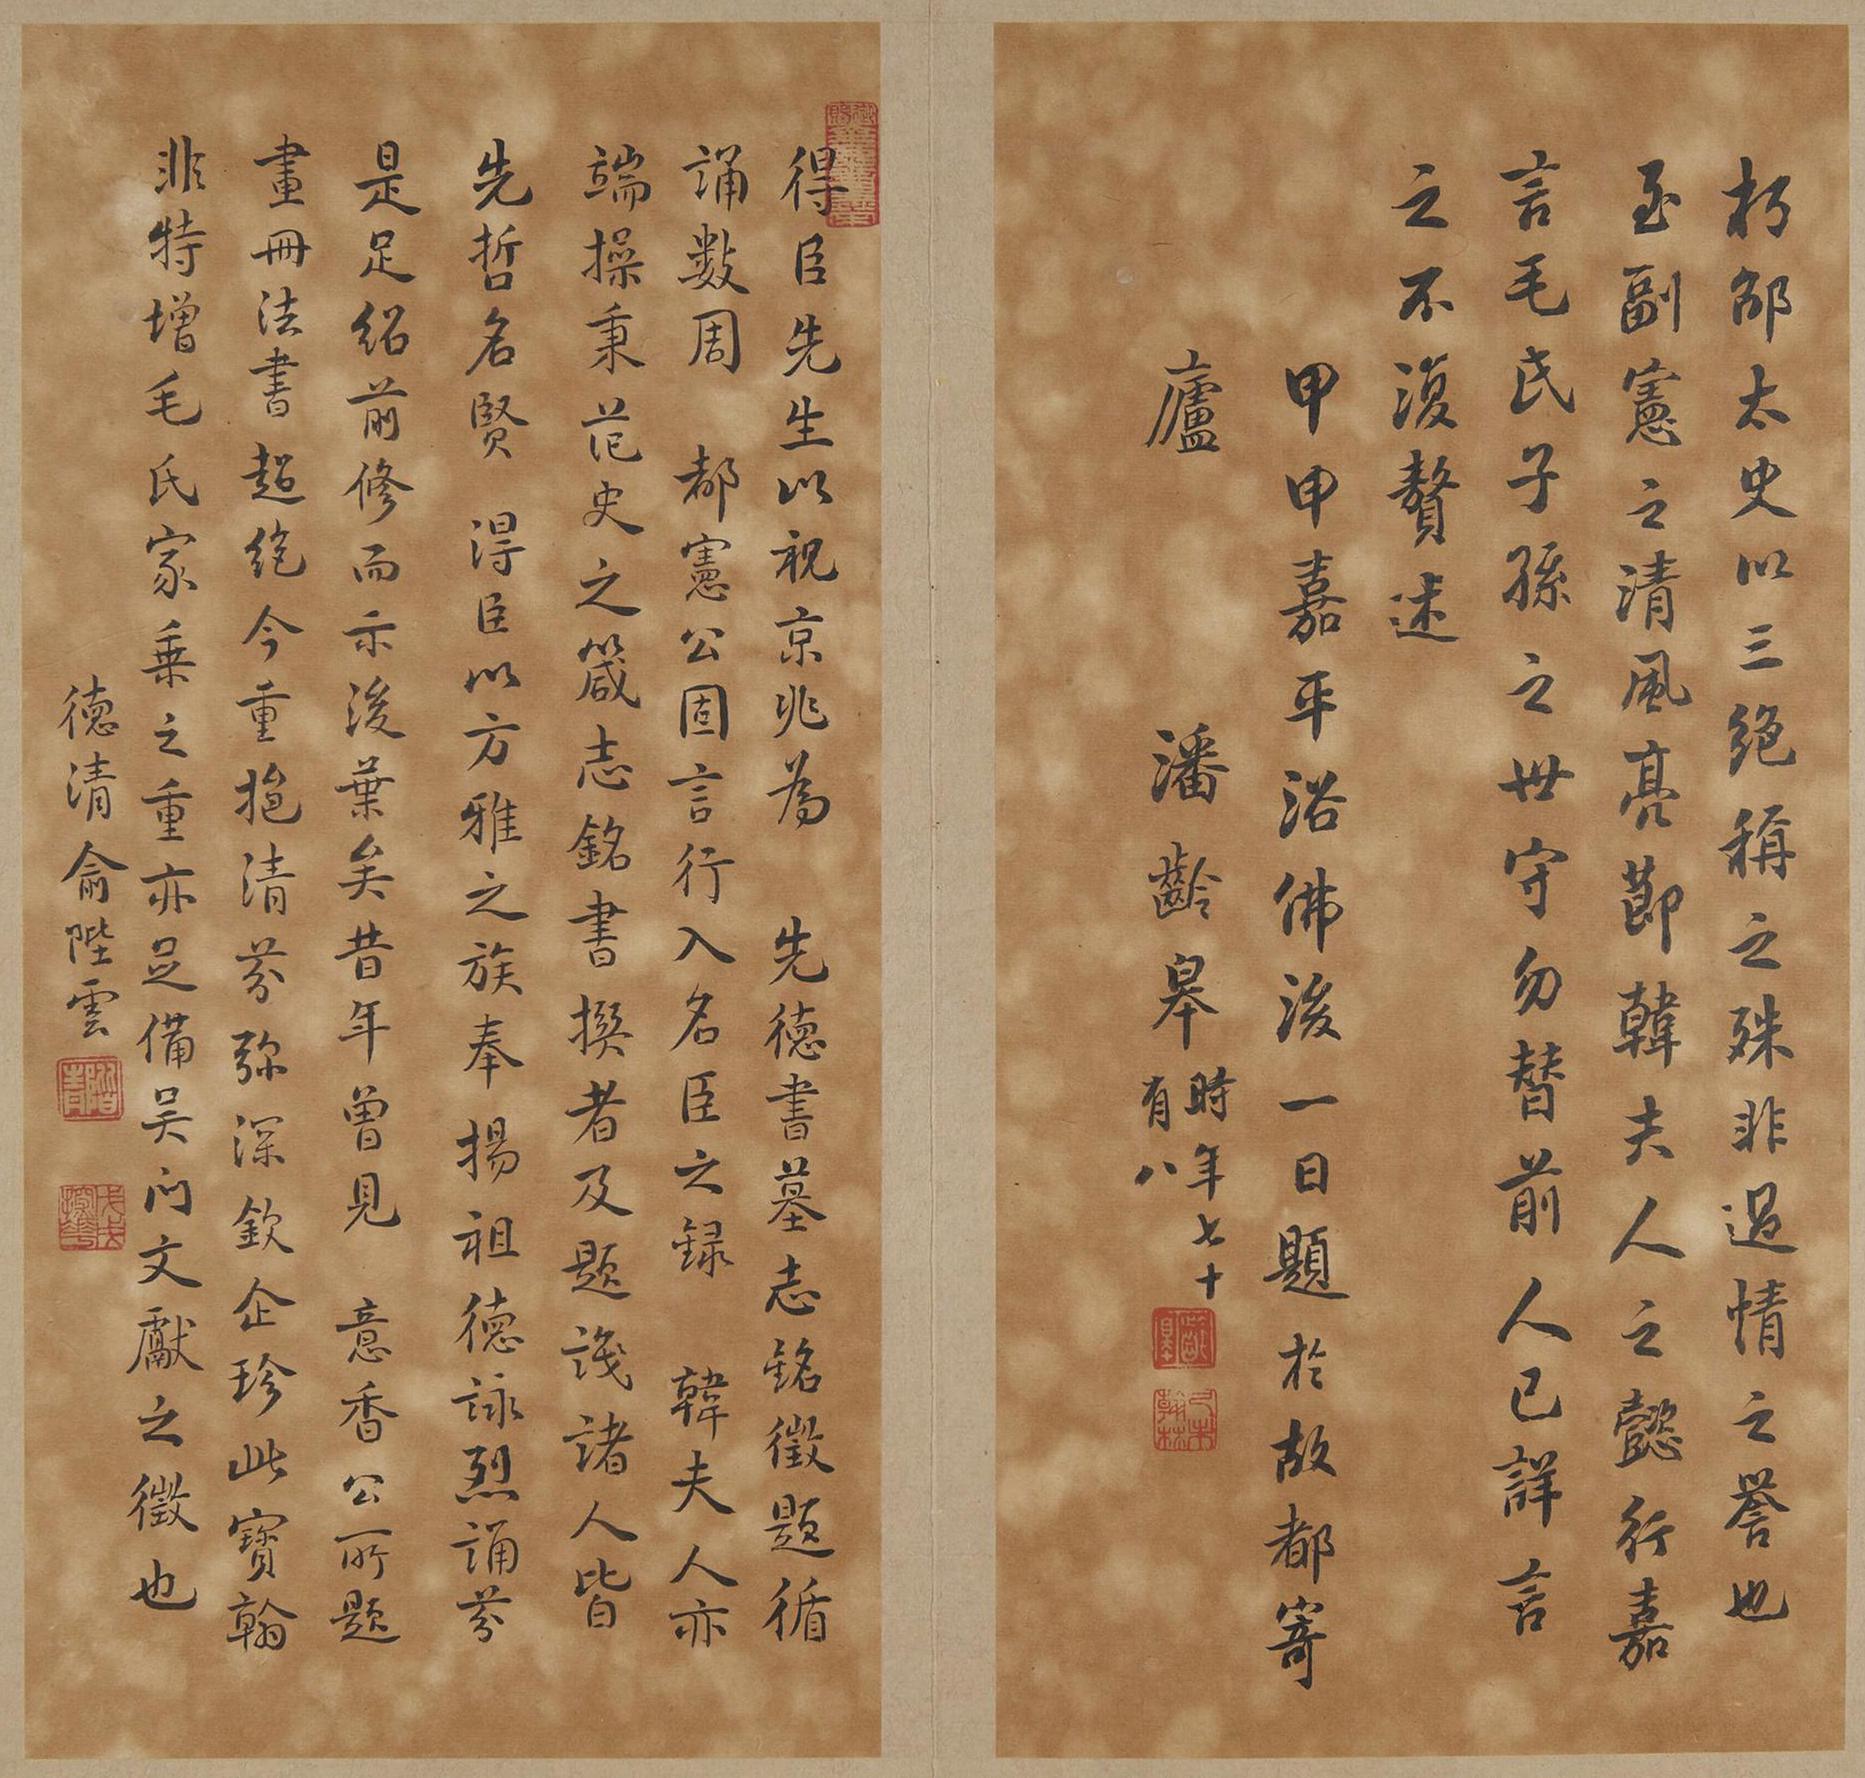 朽邵太史以三絕稱之殊非過情之譽也
至副憲之清風亮節韓夫人之懿行嘉
言毛氏子孫之世守勿替前人已詳言
之不復贅述
甲申嘉平浴佛後一日題於故都寄
廬
潘齡皋
時年七十
有八
得臣先生以祝京兆為 先德書墓志銘徵題循
誦數周 都憲公固言行入名臣之録 韓夫人亦
端操秉范史之箴志銘書撰者及題識諸人皆
先哲名賢 淂臣以方雅之族奉揚祖德詠烈誦芬
是足紹前修而示後葉矣昔年曾見 意香公所題
畫冊法書超絕今重挹清芬弥深欽企珍此寶翰
非特增毛氏家乗之重亦足備吴门文獻之徵也
德清俞陛雲